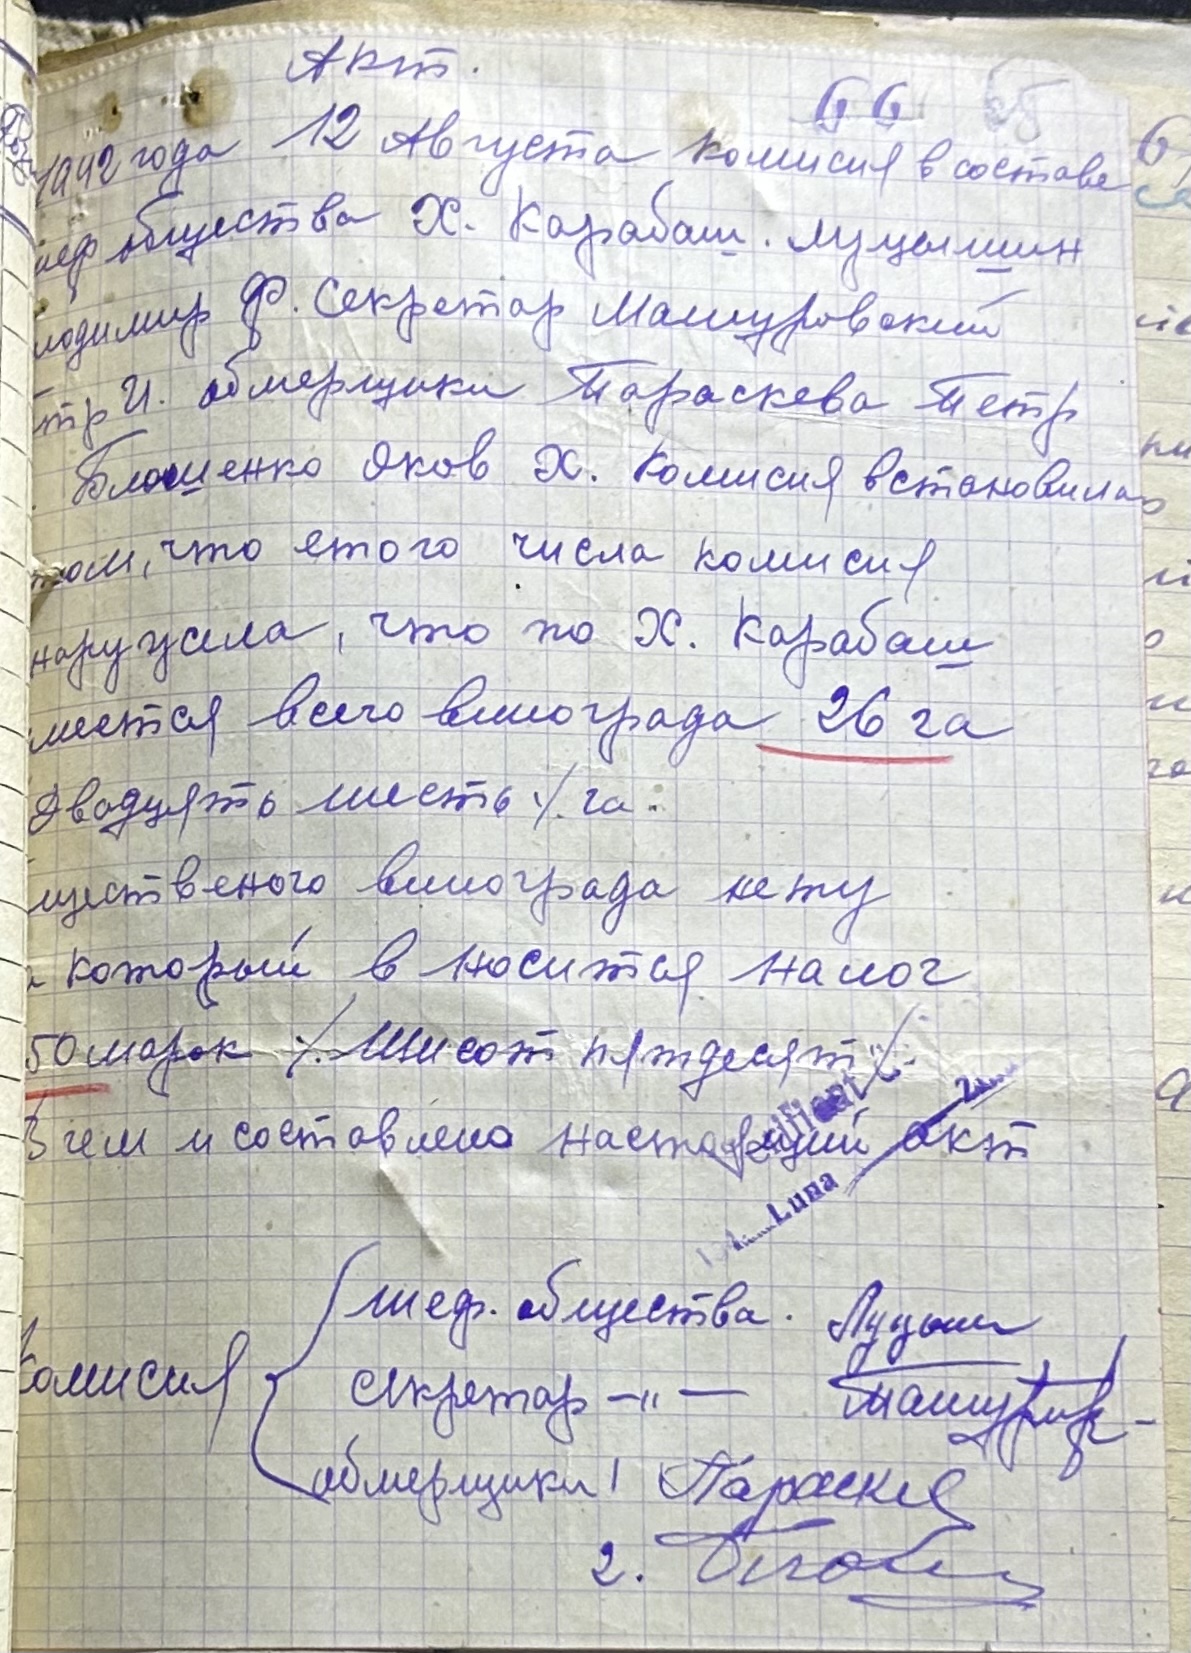 Акт.
66
1942 года 12 Августа комисия в составе
шеф общества Х. Карабаш. Луцышин
лодимир Ф. Секретар Машуровский
тр И. обмерщики Параскева Петр
Блошенко Яков Х. Комисия встановила о
том, что етого числа комисия
наружила, что по Х. Карабаш
меется всего винограда 26 га
Двадцять шесть /. га.
щественого винограда нету
который в носится налог
50 марок /. Шисот пятдесят /.
В чем и составлено настоящий акт
Verificat
Luna
Комисия
шеф. общества. Луцыш
Секретар —"—
обмерщики 1 Параскев
2.